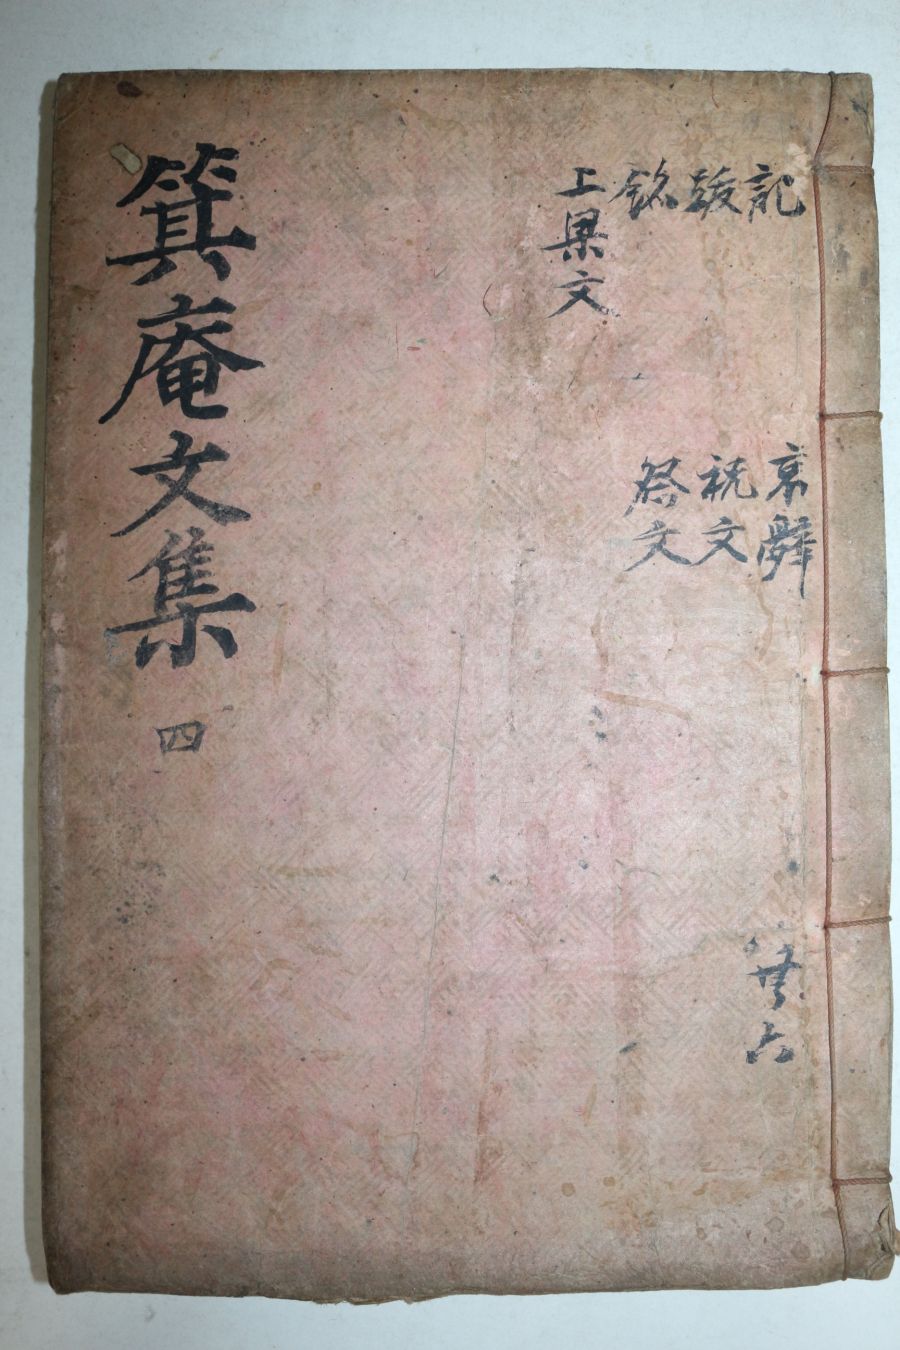 記
跋
銘
上梁文
哀辭
祝文
祭文
共六
箕庵文集 四